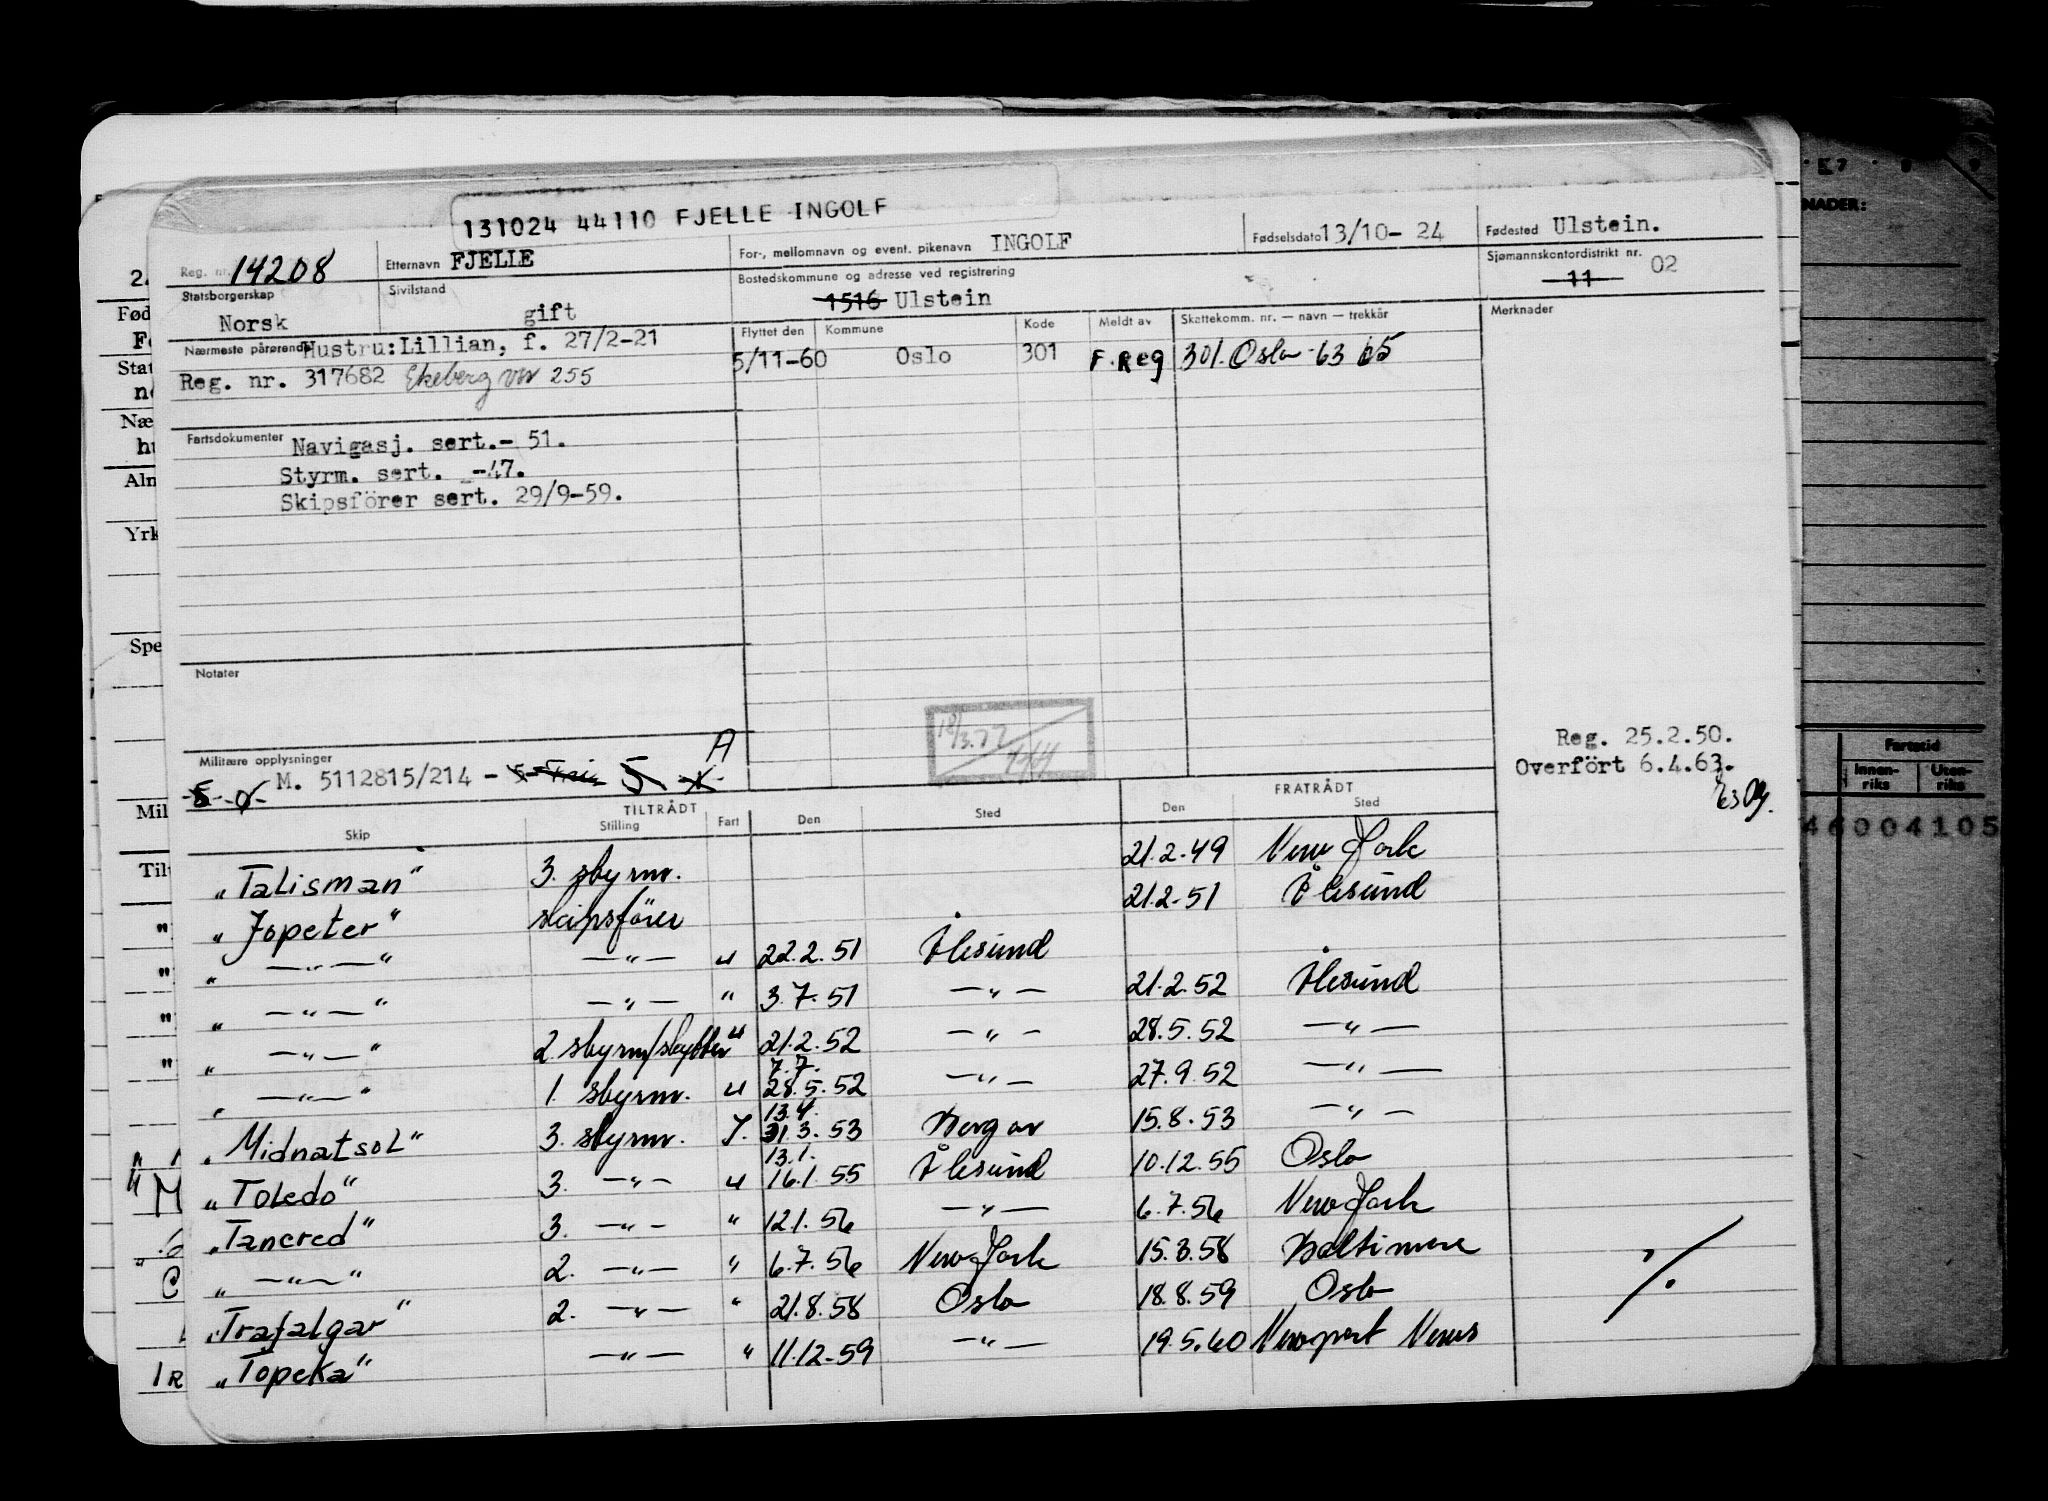 131024 44110 FJELLE INGOLF
Reg. nr. 14208 Etternavn FJELLE For-, mellomnavn og event. pikenavn INGOLF Fødselsdato 13/10- 24 Fødested Ulstein.
Statsborgerskap Norsk Sivilstand gift Bostedskommune og adresse ved registrering 1516 Ulstein Sjømannskontordistrikt nr. 11 02
Nærmeste pårørende Hustru: Lillian, f. 27/2-21 Flyttet den Kommune Kode Meldt av Skattekomm. nr. — navn — trekkår Merknader
Reg. nr. 317682 Ekeberg vn 255 5/11-60 Oslo 301 F. Reg 301. Oslo -63 65
Fartsdokumenter Navigasj. sert.- 51.
Styrm. sert. -47.
Skipsförer sert. 29/9-59.
Notater
Reg. 25.2.50.
Overfört 6.4.63.
Militære opplysninger A
M. 5112815/214 -
TILTRÅDT FRATRÅDT
Skip Stilling Fart Den Sted Den Sted
"Talisman" 3. styrm. 21.2.49 New York
"Jopeter" skipsfører 21.2.51 Ålesund
" —"—" —"— u 22.2.51 Ålesund
" —"—" —"— " 3.7.51 —"— 21.2.52 Ålesund
" —"—" 2 styrm/skytter u 21.2.52 —"— 28.5.52 —"—
7.7.
" —"—" 1. styrm. u 28.5.52 —"— 27.9.52 —"—
13.4.
"Midnatsol" 3. styrm. J. 31.3.53 Bergen 15.8.53 —"—
13.1.
"Toledo" 3. —"— u 16.1.55 Ålesund 10.12.55 Oslo
"Tancred" 3. —"— " 12.1.56 —"— 6.7.56 New York
" —"—" 2. —"— " 6.7.56 New York 15.3.58 Baltimore
"Trafalgar" 2. —"— " 21.8.58 Oslo 18.8.59 Oslo
"Topeka" —"— " 11.12-59 —"— 19.5.60 Newport News
NADER:
Fartstid
Innen-riks Uten-riks
46004105